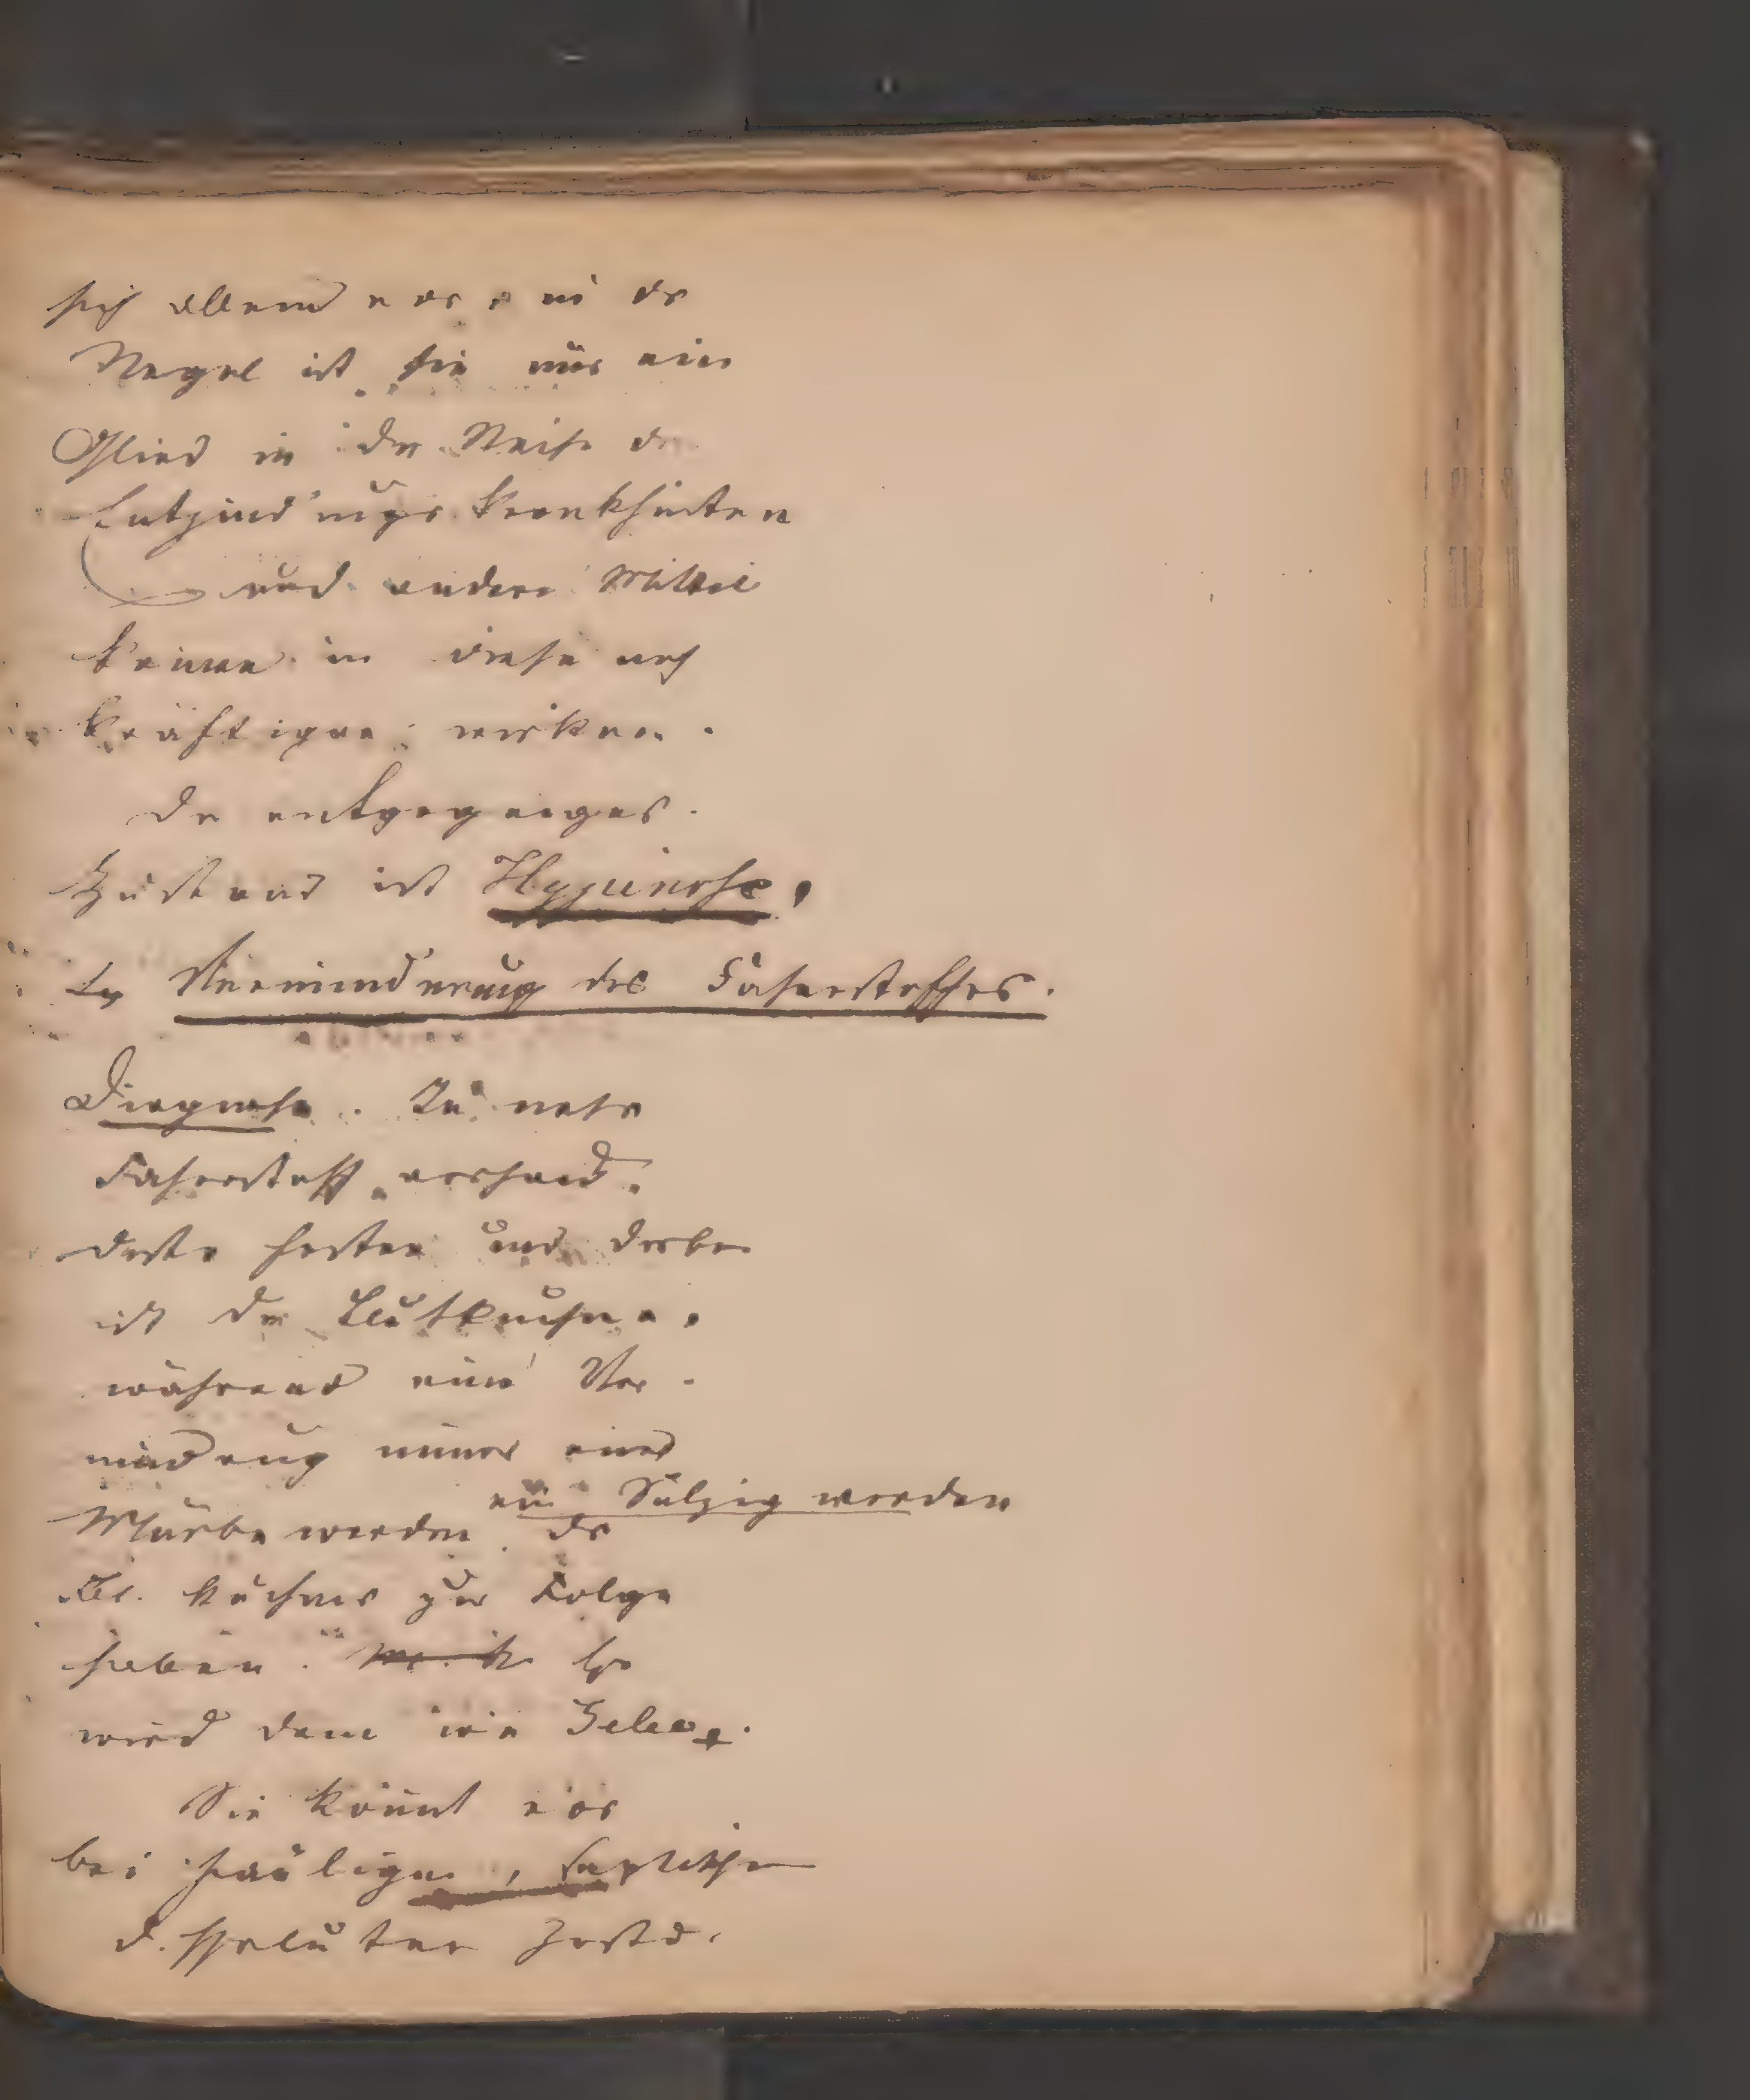 sich allein vor, in der
Regel ist sie nur ein
Glied in der Reihe der
Entzündungskrankheiten
und andere Mittel
können in diese noch
kräftiger wirken.
Der entgegenges.
Zustand ist Hypinose,
Verminderung des Faserstoffes.
Diagnose. Je mehr
Faserstoff vorhand.
desto fester und derber
ist der Blutkuchen,
während eine Ver-
minderung immer ein
ein Sulzig werden
Mürbe werden des
Bl. kuchens zur Folge
haben. Er
wird dann wie Gelee.
Sie kömmt vor
bei fauligen, septischen
d. Zustd.